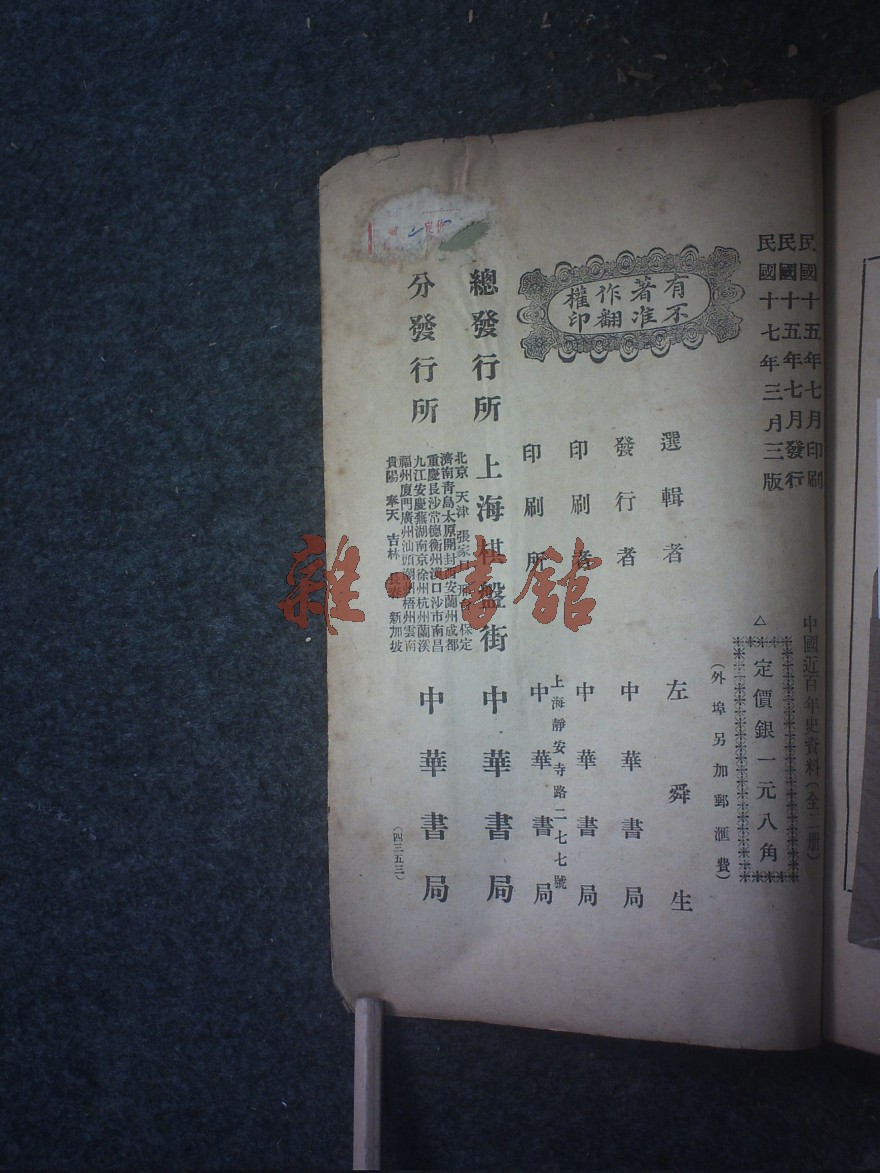 民國十五年七月印刷
民國十五年七月發行
民國十七年三月三版
中國近百年史資料(全二册)
△定價銀一元八角
(外埠另加郵匯費)
有著作權
不准翻印
選輯者 左舜生
發行者 中華書局
印刷者 中華書局
上海靜安寺路二七七號
印刷所 中華書局
總發行所 上海棋盤街 中華書局
分發行所 中華書局
北京 天津 張家 保定
濟南青島太原開封西安蘭州成都
重慶長沙常德衡州漢口沙市南昌
九江安慶蕪湖南京徐州杭州蘭溪
福州廈門廣州汕頭潮州梧州雲南
貴陽 奉天 吉林 長春 新加坡
(四三五三)
雜·書館